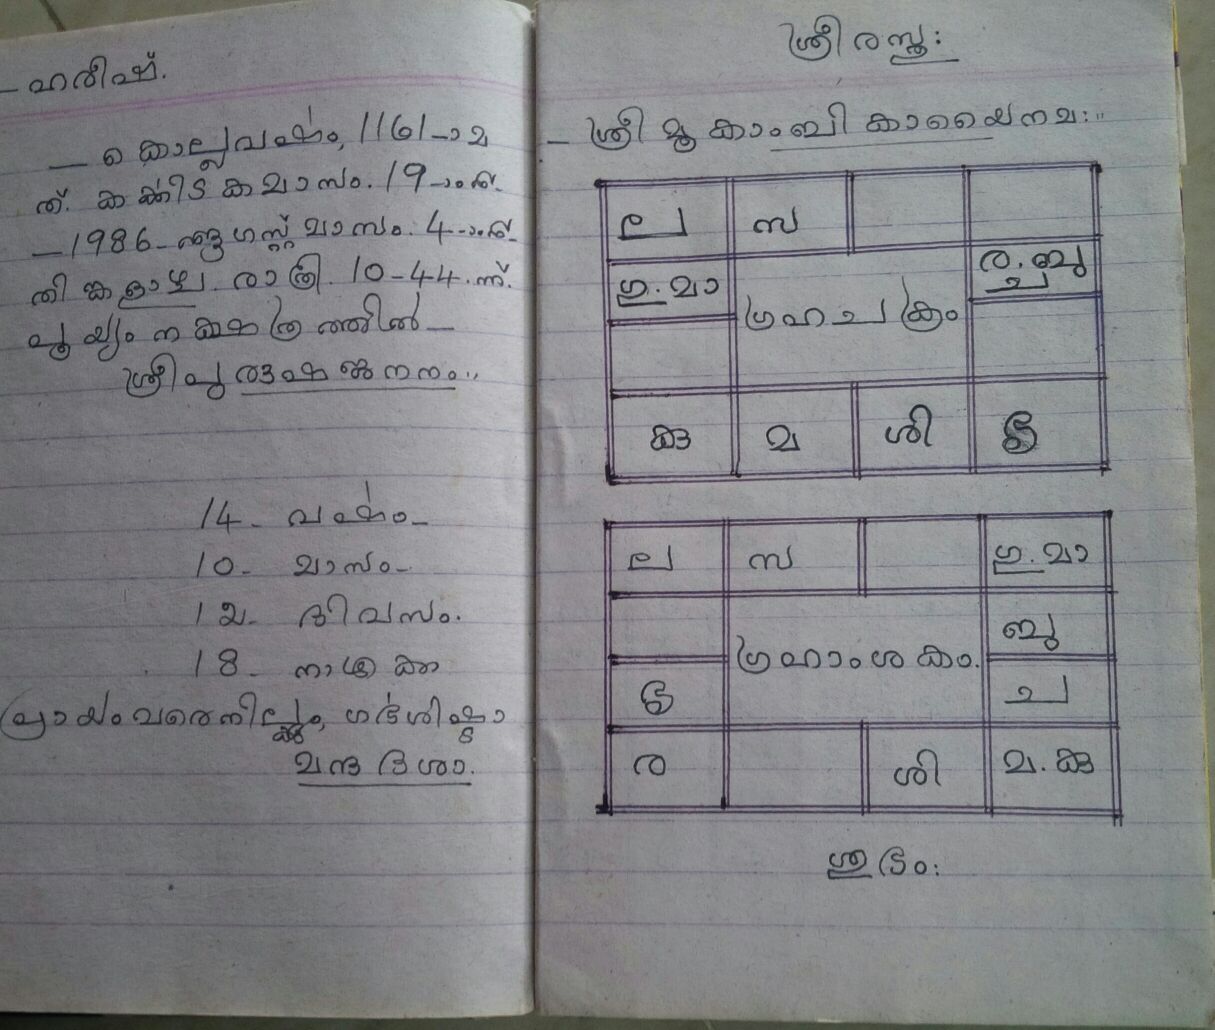 ഹരീഷ്.
— കൊല്ലവർഷം, 1161-ാമ
ത്. കർക്കിടകമാസം. 19-ാംതി.
— 1986- ആഗസ്റ്റ് മാസം. 4-ാംതി-
തിങ്കളാഴ്ച. രാത്രി. 10-44.ന്ന്.
പൂയ്യം നക്ഷത്രത്തിൽ—
ശ്രീപുരുഷ ജനനം..
14- വർഷം-
10- മാസം-
12- ദിവസം.
18- നാഴിക
പ്രായംവരെനില്ക്കും, ഗർഭശിഷ്ട
മന്ദ ദശാ.
ശ്രീരസ്തുഃ
- ശ്രീ മൂകാംബികായൈനമഃ..
ല സ
ഗു.മാ ഗ്രഹചക്രം ര.ബു
ച
കു മ ശി ശു
ല സ ഗു.മാ
ഗ്രഹാംശകം. ബു
ച
ര ശി മ.കു
ശുഭം: